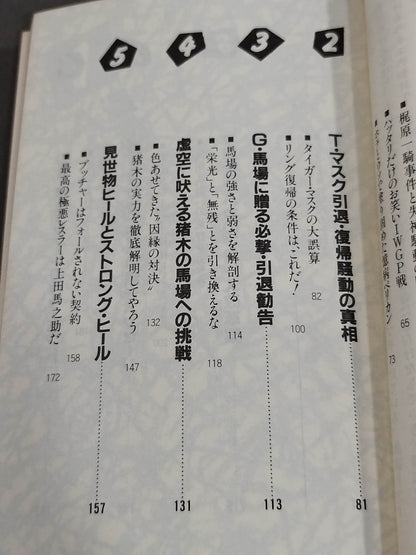 梶原一騎事件と
ハッタリだけのお笑いIWGP戦
65
73
2
T・マスク引退・復帰騒動の真相
81
■タイガー・マスクの大誤算
82
■リング復帰の条件は、これだ!
100
3
G・馬場に贈る必撃・引退勧告
113
■馬場の強さと弱さを解剖する
114
■「栄光」と「無残」とを引き換えるな
118
4
虚空に吠える猪木の馬場への挑戦
131
■色あせてきた〝因縁の対決〟
132
■猪木の実力を徹底解明してやろう
147
5
見世物ヒールとストロング・ヒール
157
■ブッチャーはフォールされない契約
158
■最高の極悪レスラーは上田馬之助だ
172